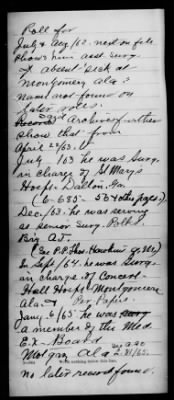 Roll for
July & Aug /62. next on file
shows him asst. surg.
& absent "sick at
Montgomery Ala."
Name not found on
later rolls.
Records archives further
show that from
April 24/63, to
July /63 he was Surg.
in charge of St Marys
Hospl. Dalton, Ga.
(6-685-
Dec./63. he was serving
as senior surg. Polk's
Brig A.T.
(See P.P. Thos. Hawkins
In Sept /64. he was Surg.
in charge of Concert-
Hall Hospl. Montgomery
Ala. Per. Papers.
Jany. 6/65 he was surg
a member of the Med
Ex. Board
Motgry Ala 2/31/65.
no later record found.